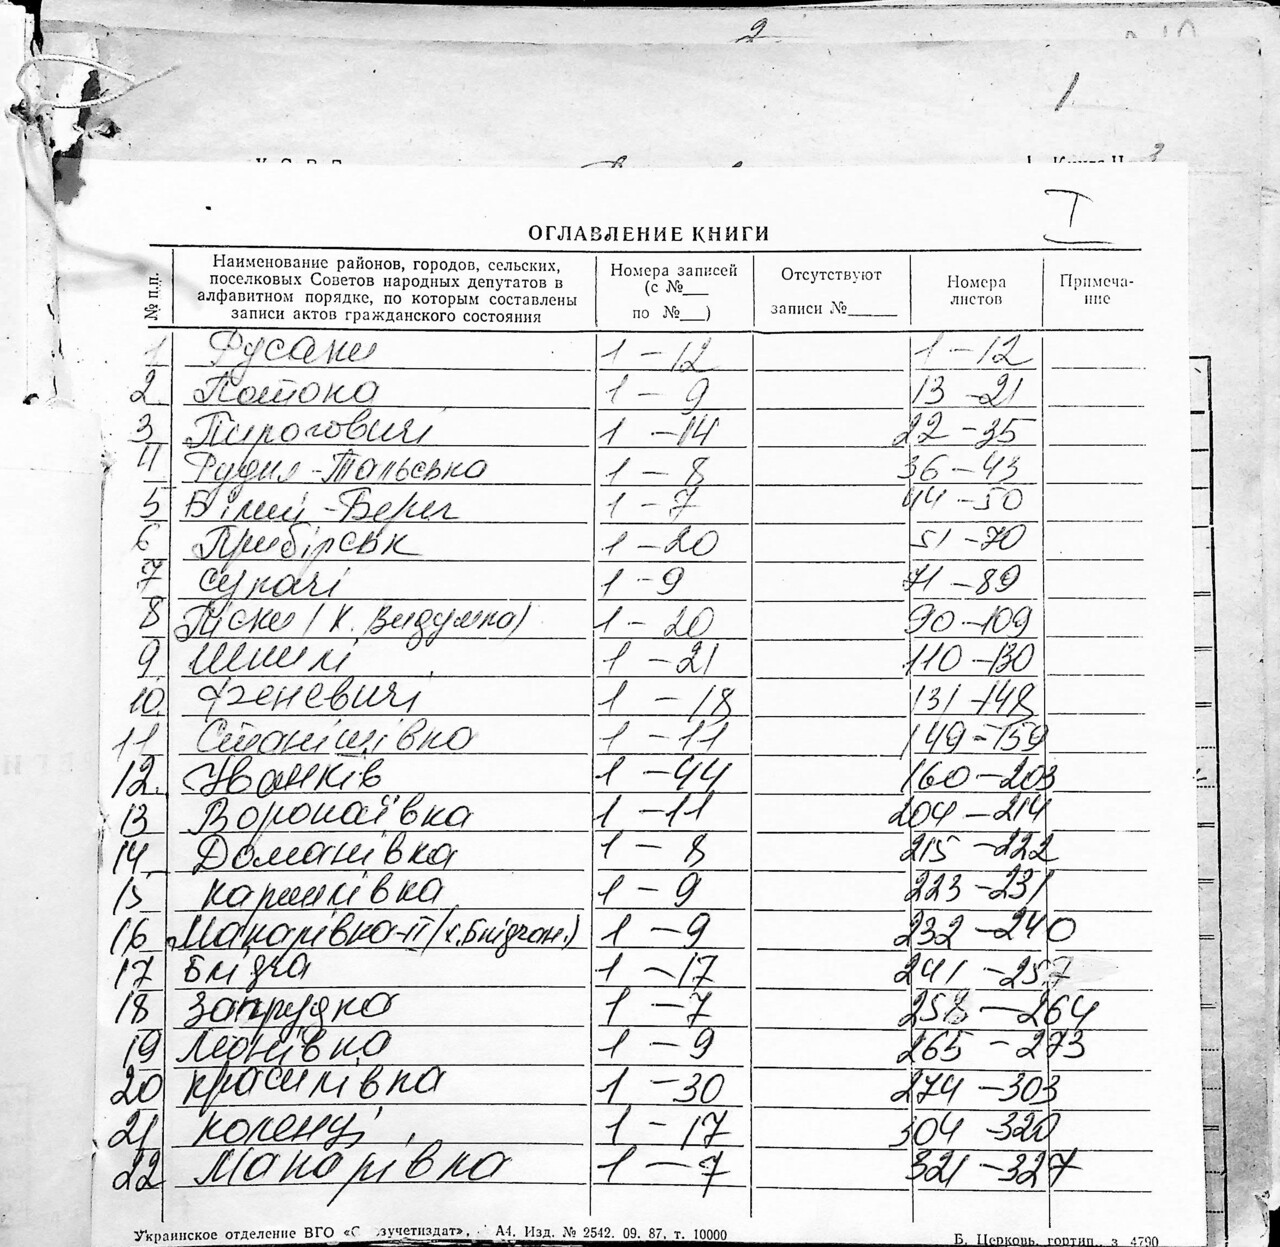 2
1
I
ОГЛАВЛЕНИЕ КНИГИ
№ п.п. Наименование районов, городов, сельских, поселковых Советов народных депутатов в алфавитном порядке, по которым составлены записи актов гражданского состояния Номера записей (с №__ по №__) Отсутствуют записи №____ Номера листов Примеча-ние
1 Русаки 1 - 12 1 - 12
2 Потоки 1 - 9 13 - 21
3 Пироговичі 1 - 14 22 - 35
4 Рудня-Тальська 1 - 8 36 - 43
5 Білий-Берег 1 - 7 44 - 50
6 Прибірськ 1 - 20 51 - 70
7 Сукачі 1 - 9 71 - 89
8 Піски (к. Видумка) 1 - 20 90 - 109
9 Шпилі 1 - 21 110 - 130
10 Феневичі 1 - 18 131 - 148
11 Станішівка 1 - 11 149 - 159
12. Іванків 1 - 44 160 - 203
13 Воропаївка 1 - 11 204 - 214
14 Доманівка 1 - 8 215 - 222
15 Карпилівка 1 - 9 223 - 231
16 Макарівка-II 1 - 9 232 - 240
17 Блідча 1 - 17 241 - 257
18 Запрудка 1 - 7 258 - 264
19 Леонівка 1 - 9 265 - 273
20 Красилівка 1 - 30 274 - 303
21 Коленці 1 - 17 304 - 320
22 Макарівка 1 - 7 321 - 327
Украинское отделение ВГО «С зучетиздат», А4. Изд. № 2542. 09. 87. т. 10000 Б. Церковь, гортип., з. 4790